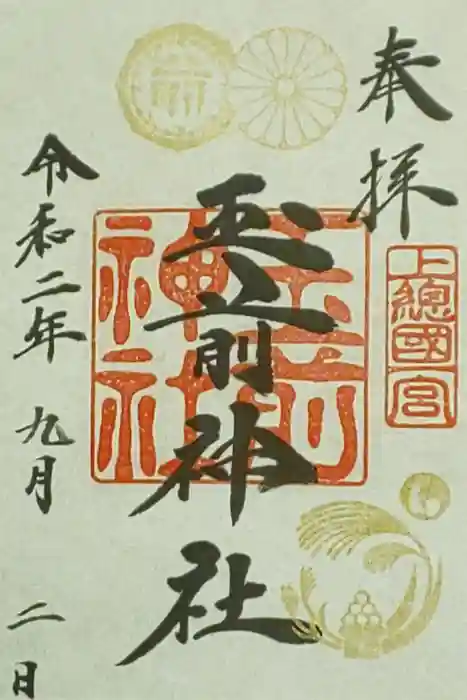 奉拝
上總國一宮
玉前神社
玉前神社
令和二年九月二日